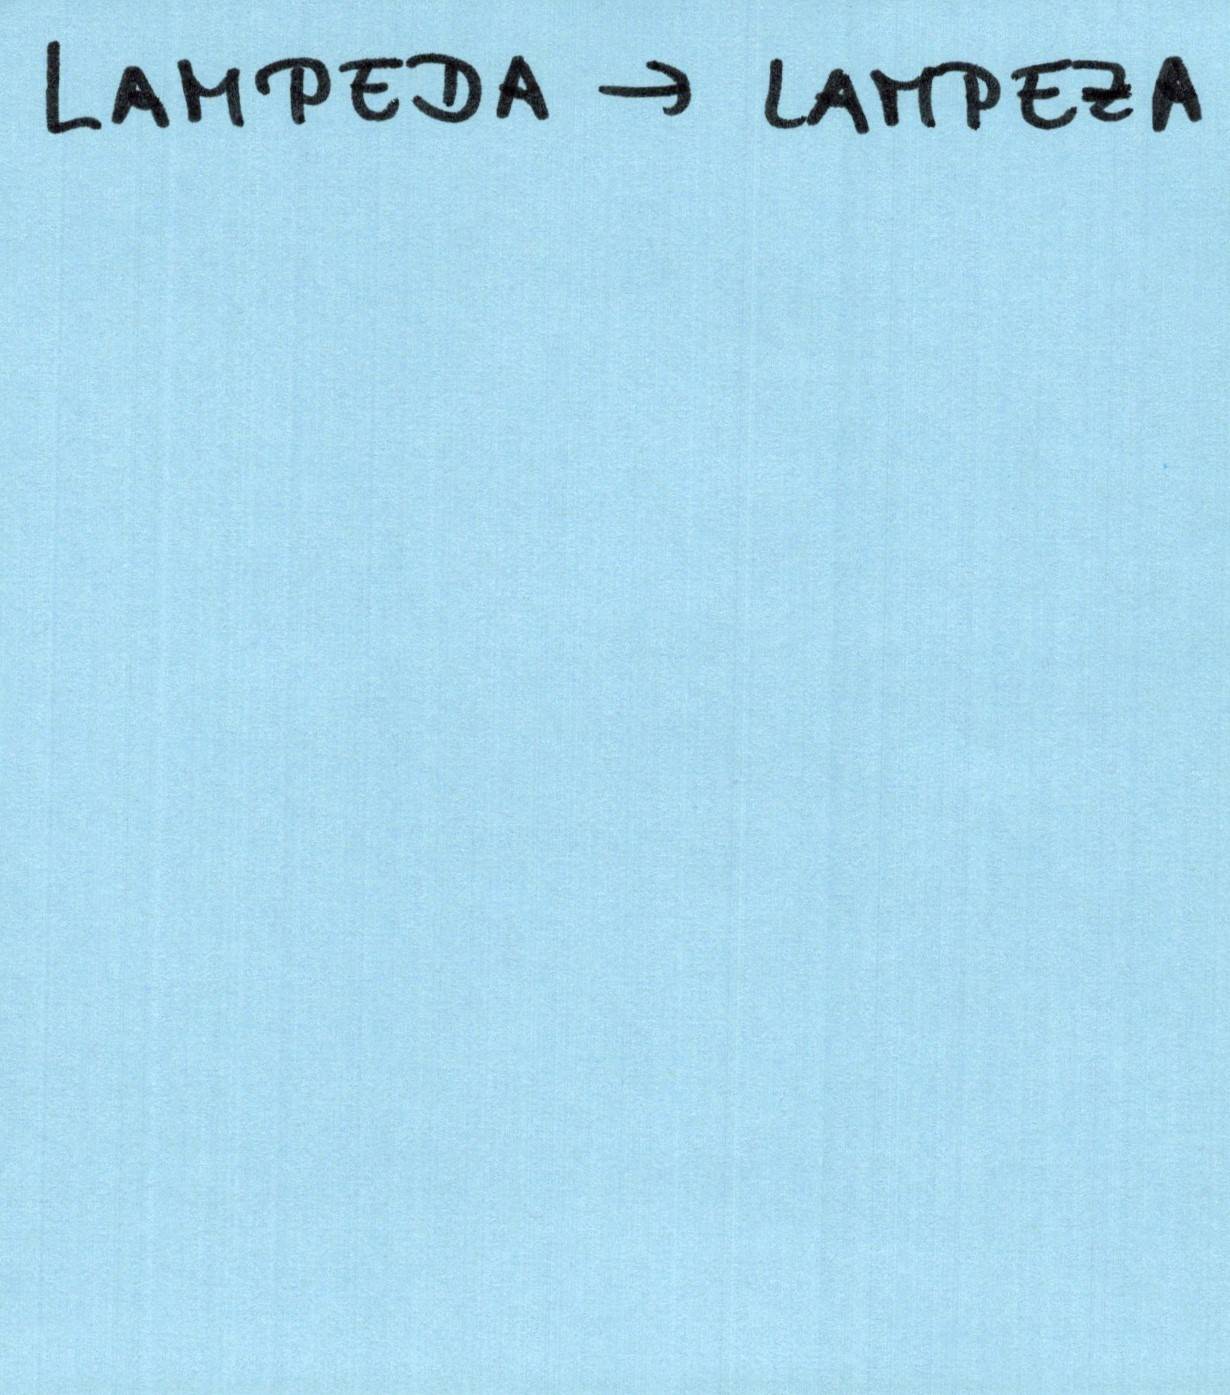 LAMPEDA → LAMPEZA